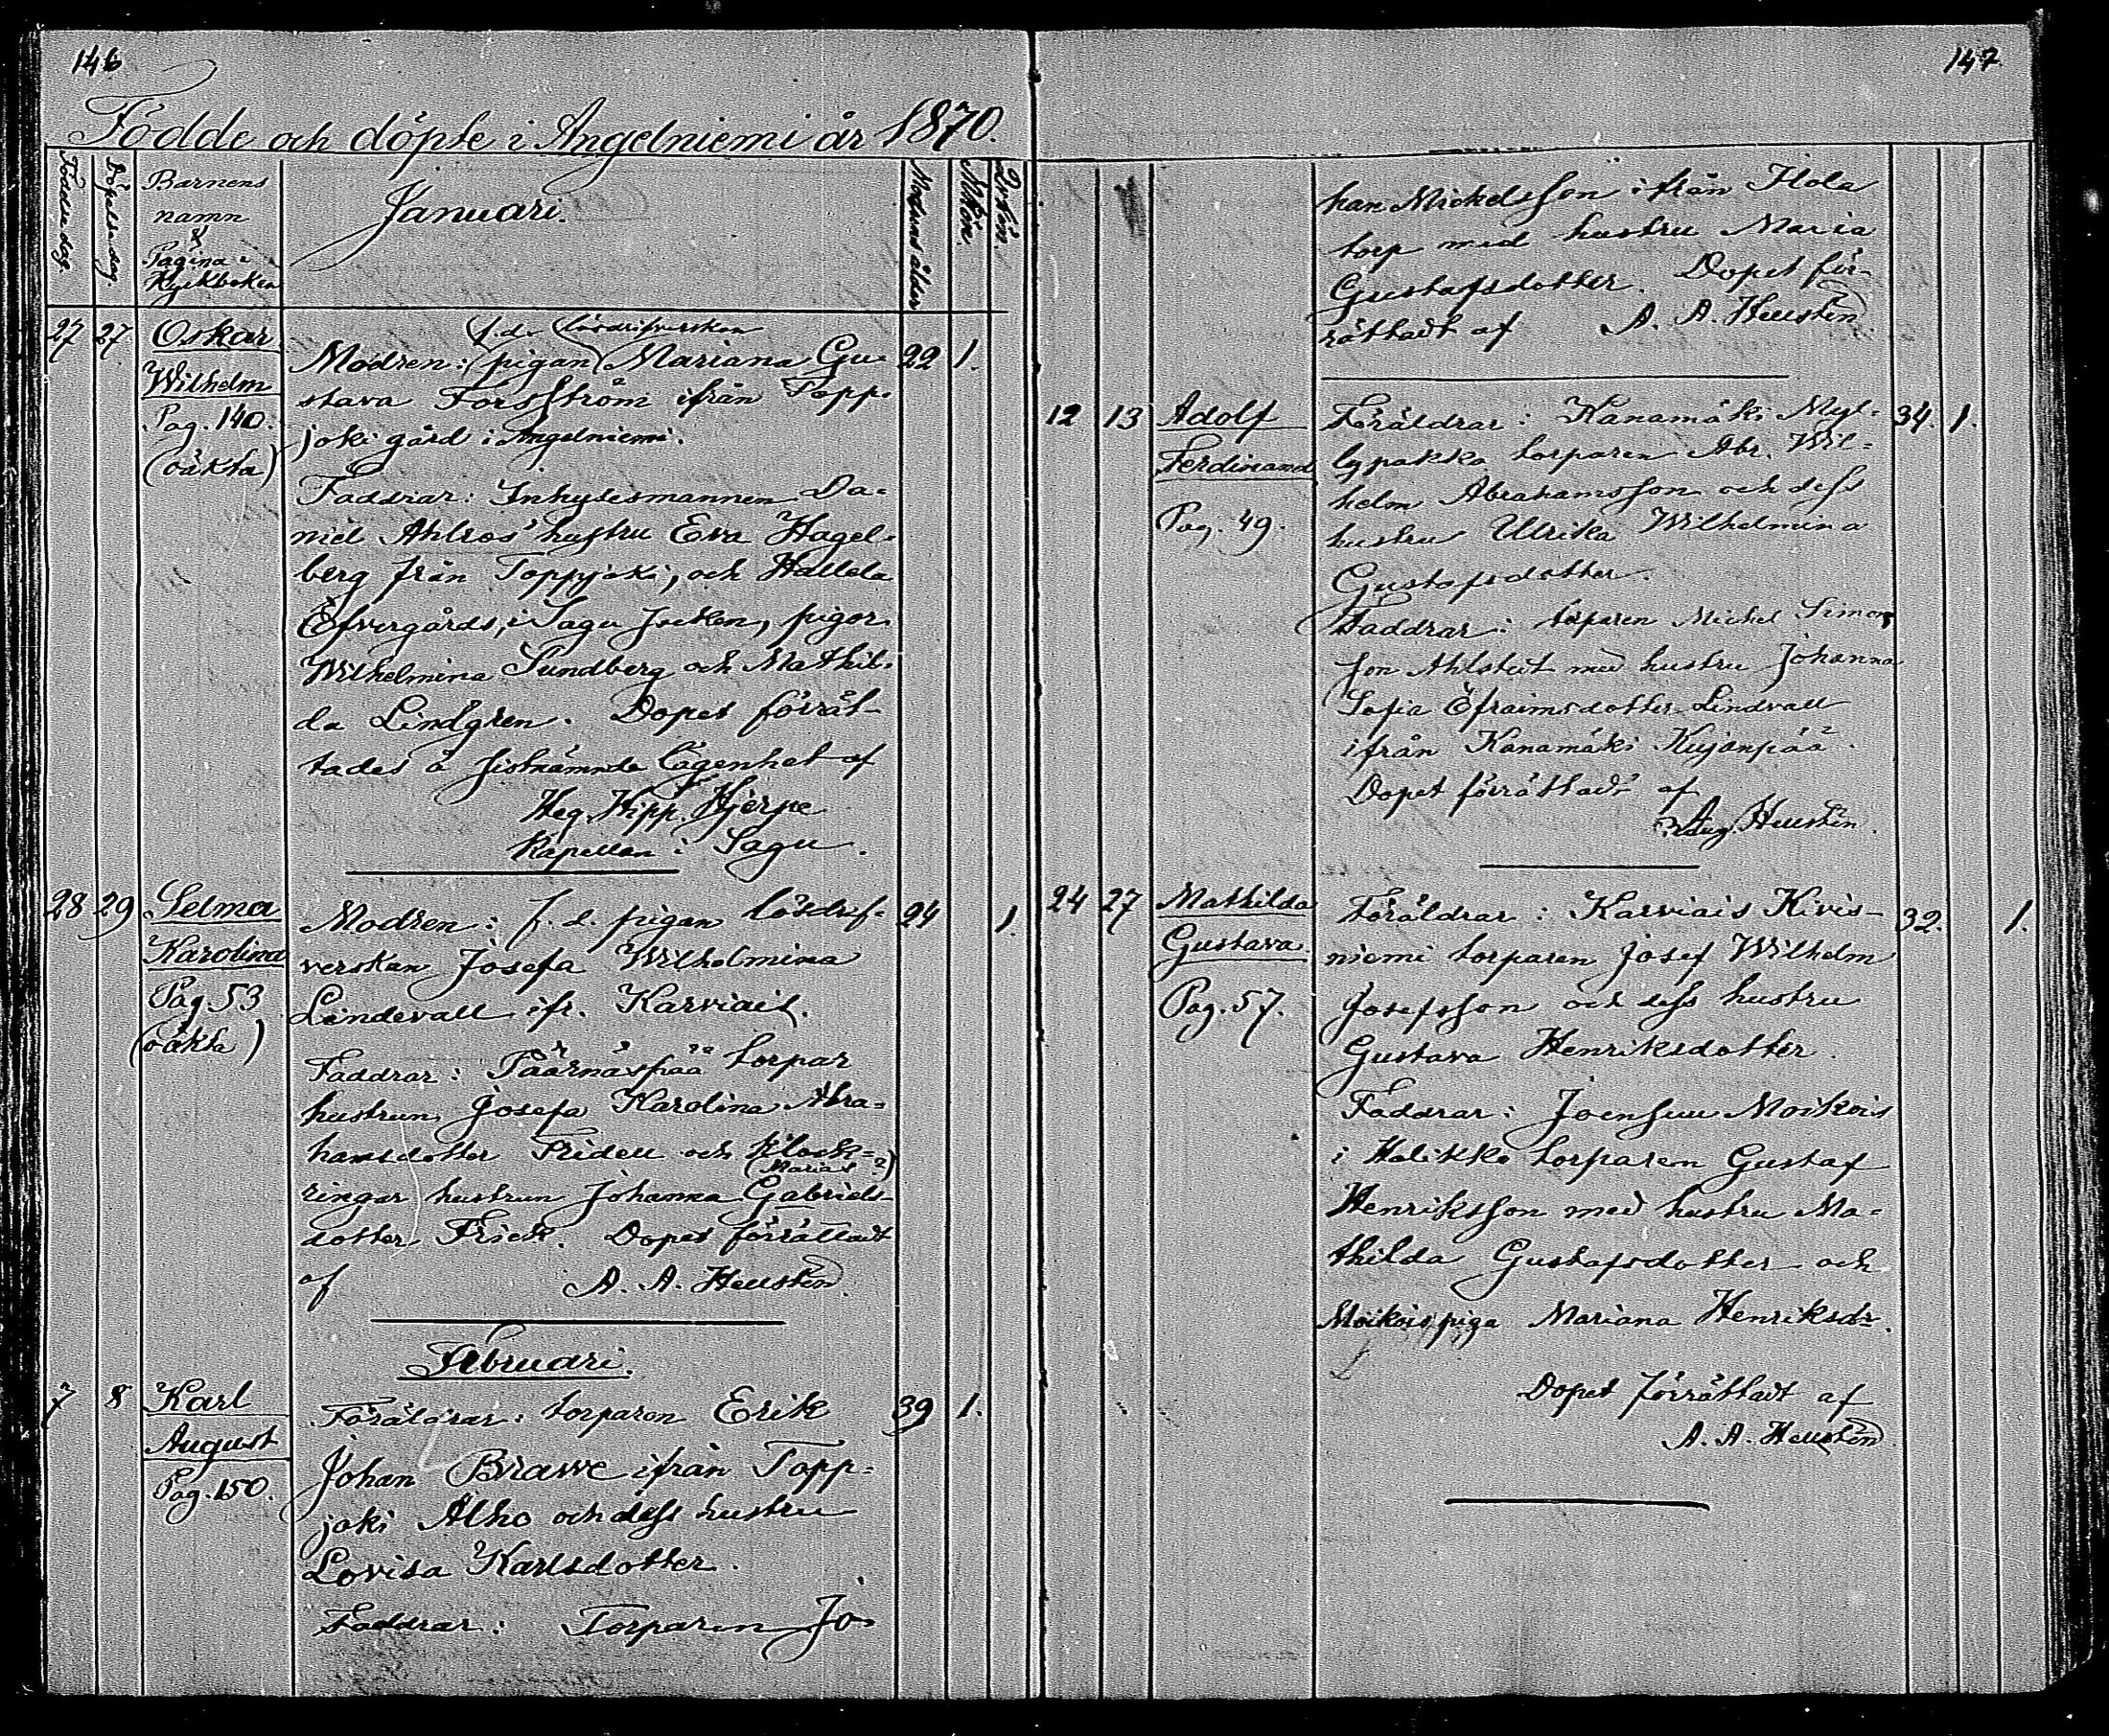 146
Födde och döpte i Angelniemi år 1870.
Födelse dag.
Döpelse dag.
Barnens
namn
&
Pagina i
Kyrkboken
Januari.
Modrens ålder
M.kön.
Qv.kön.
27 27 Oskar
Wilhelm
Pag. 140.
(oäkta)
f.d. lösdrifverskan
Modren: (pigan) Mariana Gu- 22 1.
stava Forsström ifrån Topp-
joki gård i Angelniemi.
Faddrar: Inhysesmannen Da-
niel Ahlros' hustru Eva Hagel-
berg från Toppjoki, och Hallela
Öfvergårds, i Sagu Socken, pigor
Wilhelmina Sundberg och Mathil-
da Lindgren. Dopet förrät-
tades å sistnämnde lägenhet af
Heg. Hipp. Hjerpe
Kapellan i Sagu.
28 29 Selma
Karolina
Pag 53
(oäkta)
Modren: f. d. pigan lösdrif- 24 1.
verskan Josefa Wilhelmina
Lindevall ifr. Karviais.
Faddrar: Päärnäspää torpar
hustrun Josefa Karolina Abra-
hamsdotter Fridell och Klock-
(Maria ?)
ringar hustrun Johanna Gabriels-
dotter Frisk. Dopet förrättadt
af A. A. Hellstén.
Februari.
7 8 Karl
August
Pag. 150.
Föräldrar: torparen Erik 39 1.
Johan Brawe ifrån Topp-
joki Alho och dess hustru
Lovisa Karlsdotter.
Faddrar: Torparen Jo-
147
han Mickelsson ifrån Hola
torp med hustru Maria
Gustafsdotter. Dopet för-
rättadt af A. A. Hellstén.
12 13 Adolf
Ferdinand
Pag. 49.
Föräldrar: Kanamäki Myl- 34. 1.
lypakka torparen Abr. Wil-
helm Abrahamsson och dess
hustru Ulrika Wilhelmina
Gustafsdotter.
Faddrar: torparen Michel Simons
son Ahlstedt med hustru Johanna
Sofia Efraimsdotter Lindvall
ifrån Kanamäki Kujanpää.
Dopet förrättadt af
Aug. Hellstén.
24 27 Mathilda
Gustava.
Pag. 57.
Föräldrar: Karviais Kivis- 32. 1.
niemi torparen Josef Wilhelm
Josefsson och dess hustru
Gustava Henriksdotter.
Faddrar: Joensuu Moikois
i Halikko torparen Gustaf
Henriksson med hustru Ma-
thilda Gustafsdotter och
Moikois piga Mariana Henriksdr.
Dopet förrättadt af
A. A. Hellstén